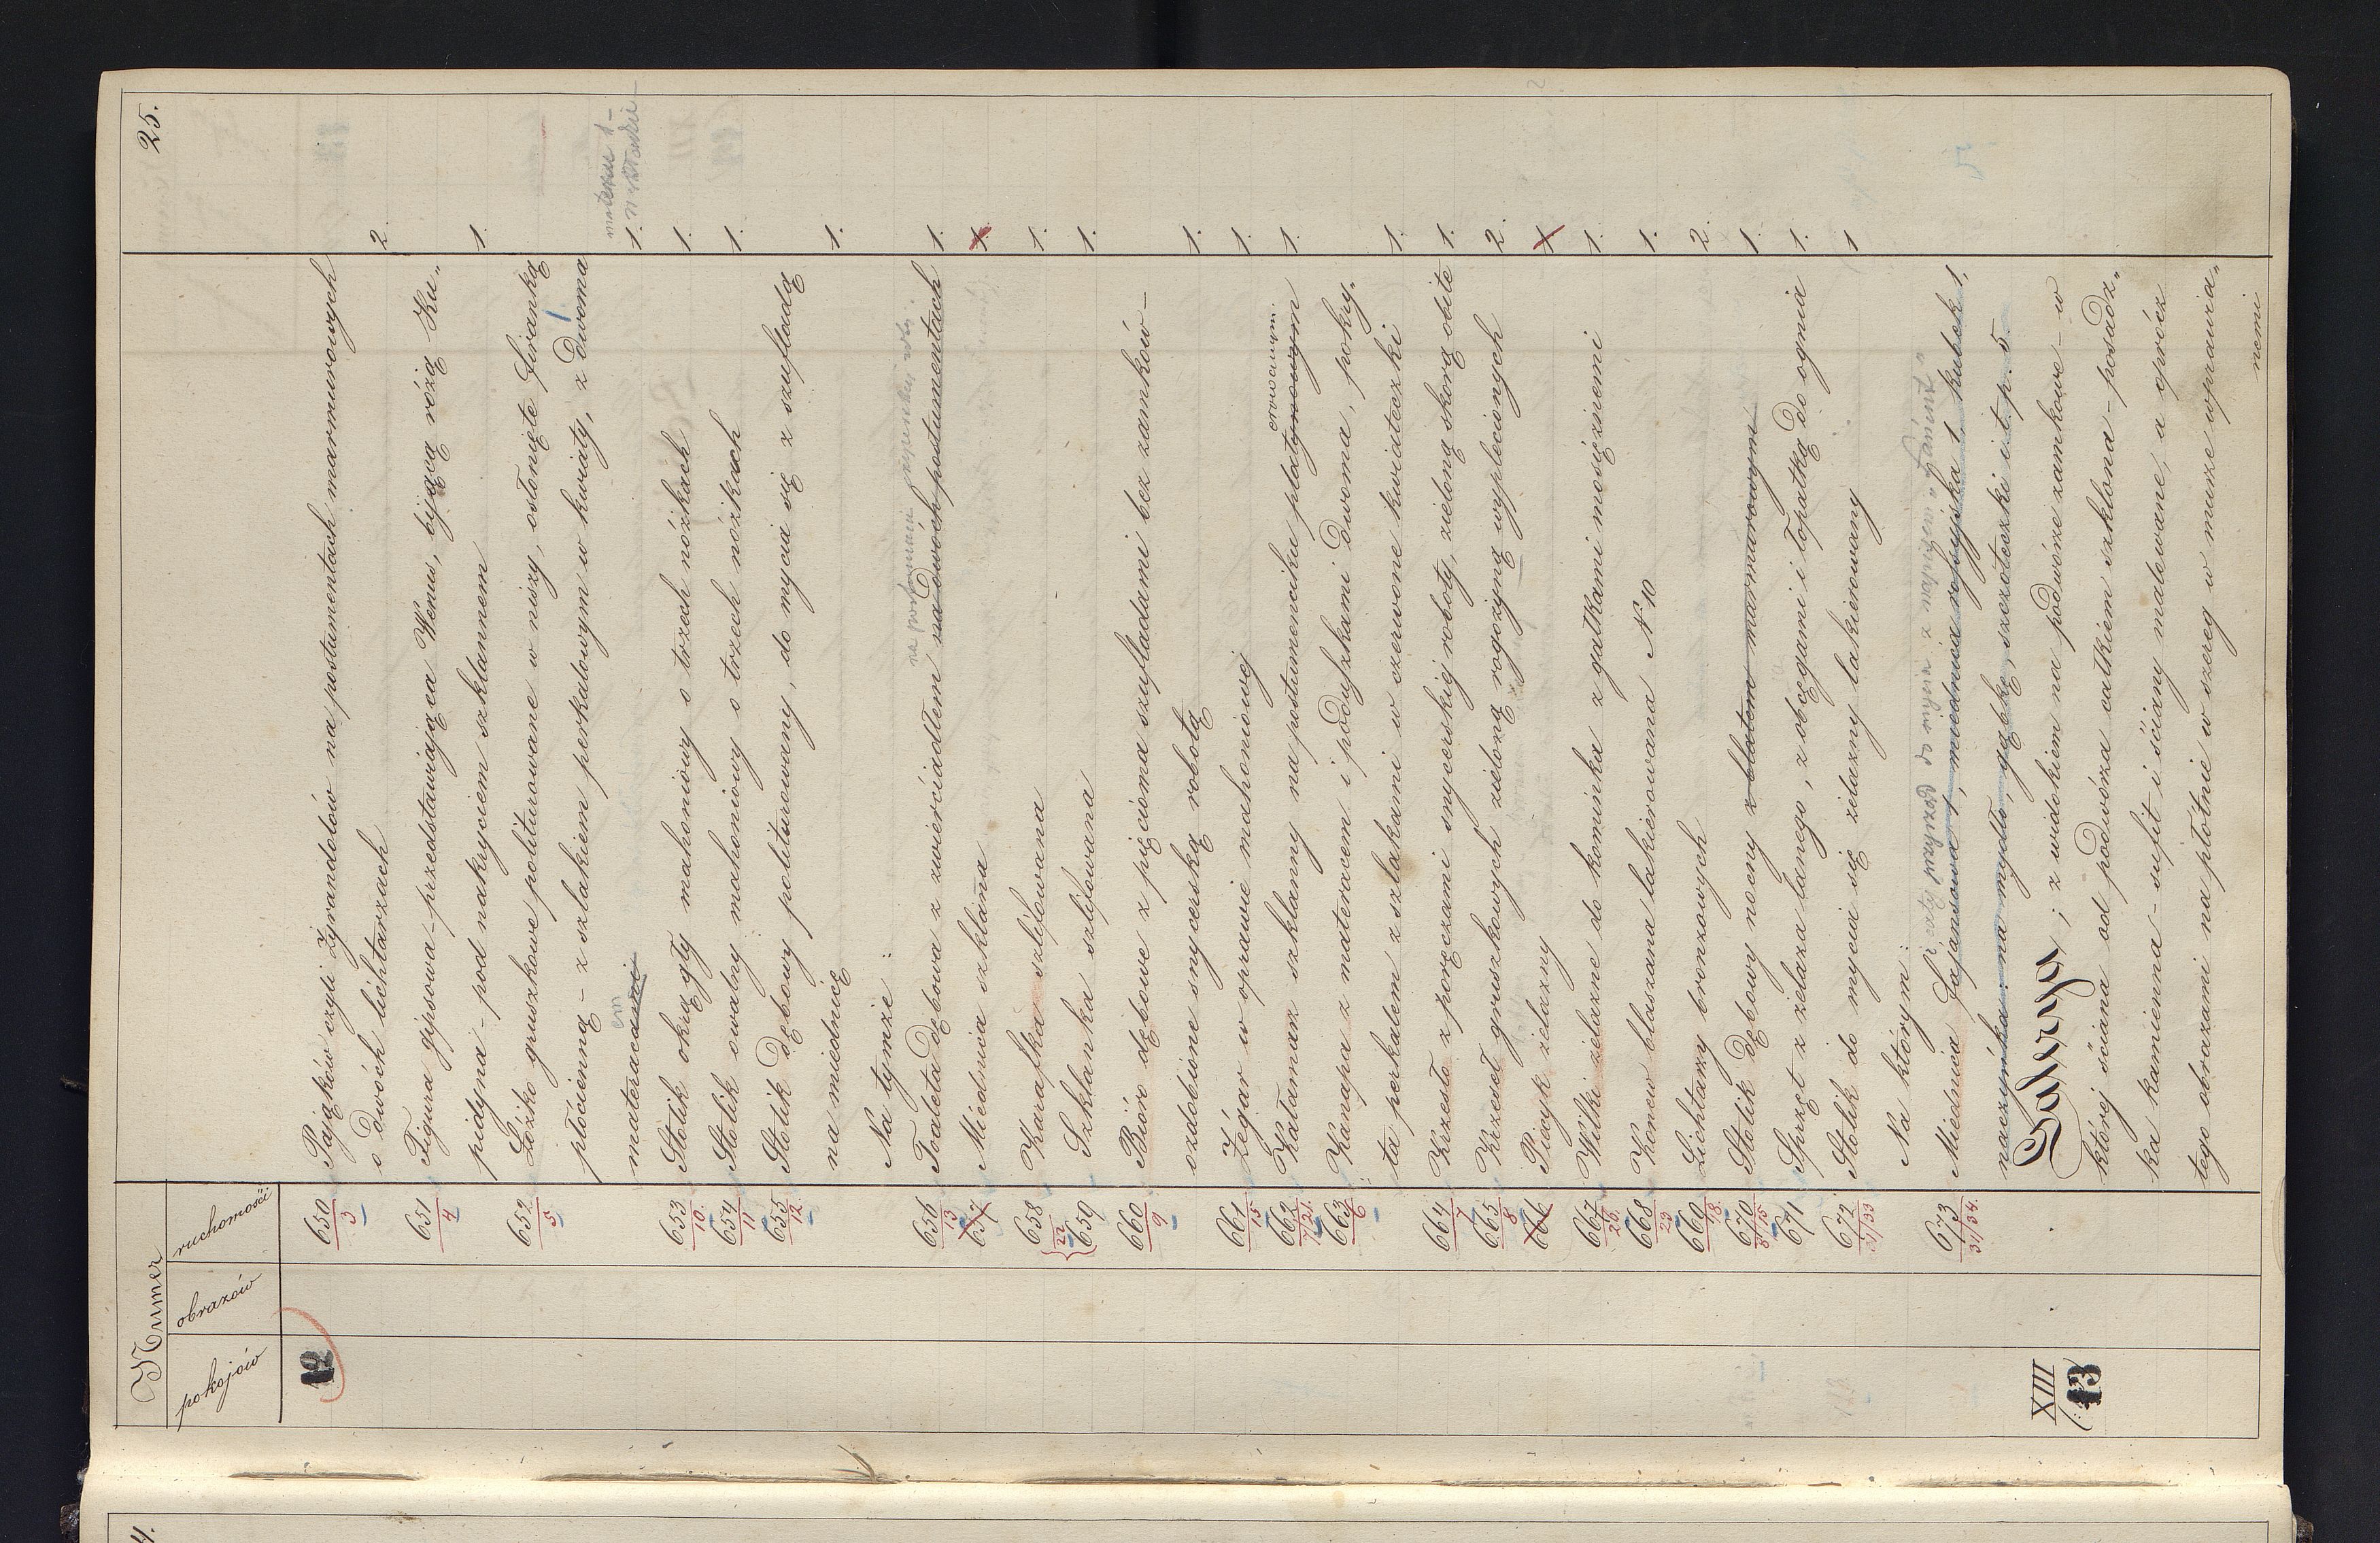 25.
Numer
pokojów obrazów ruchomości
12
650 Pająków czyli żyrandolów na postumentach marmurowych
3 o dwóch lichtarzach 2.
651 Figura gipsowa - przedstawiająca Wenus, bijącą rózgą Ku„
4 pidyna - pod nakryciem szklannem 1.
652 Łóżko gruszkowe politurowane w niszy, osłonięte firanką
5 płócienną - z szlakiem perkalowym w kwiaty, z dwoma 1
em materacu 1 -
materacami 1.
653 Stolik okrągły mahoniowy o trzech nóżkach 1.
10.
654 Stolik owalny mahoniowy o trzech nóżkach 1.
11
655 Stolik dębowy politurowany, do mycia się z szufladą
12. na miednicę 1.
Na tymże:
na
656 Toaleta dębowa z zwierciadłem na dwóch postumentach 1.
13
657 Miednica szklana 1.
658 Karafka szlifowana 1.
22
659 Szklanka szlifowana 1.
660 Bióro dębowe z pięcioma szufladami bez zamków -
9 ozdobione snycerską robotą 1.
661 Zégar w oprawie mahoniowej 1.
15
662 Kałamarz szklanny na postumenciku platynowym 1.
7/21.
663 Kanapa z materacem i poduszkami dwoma, pokry.
6 ta perkalem z szlakami w czerwone kwiateczki 1.
664 Krzesło z poręczami snycerskiéj roboty, zieloną skorą obite 1.
7
665 Krzeseł gruszkowych zieloną rogożyną wyplecionych 2.
8
666 Piecyk żelazny 1
667 Wilki żelazne do kominka z gałkami mosiężnemi 1.
26.
668 Konew blaszana lakierowana N 10 1.
23
669 Lichtarzy bronzowych 2.
18.
670 Stolik dębowy nocny z blatem marmurowym 1.
8/15
671 Sprzęt z żelaza lanego, z obcęgami i łopatką do ognia 1.
672 Stolik do mycia się żelazny lakierowany 1
31/33
Na którym:
i cały przyrząd do mycia z
673 Miednica fajansowa 1, miednica rossyjska 1, kubek 1,
31/34. naczyńka: na mydło, gąbkę, szczoteczki i t. p. 5.
XIII Galerya; z widokiem na podwórze zamkowe - w
13 której ściana od podwórza całkiem szklona - posadz„
ka kamienna - sufit i ściany malowane, a oprócz
tego obrazami na płótnie w szereg w murze oprawia„
nemi